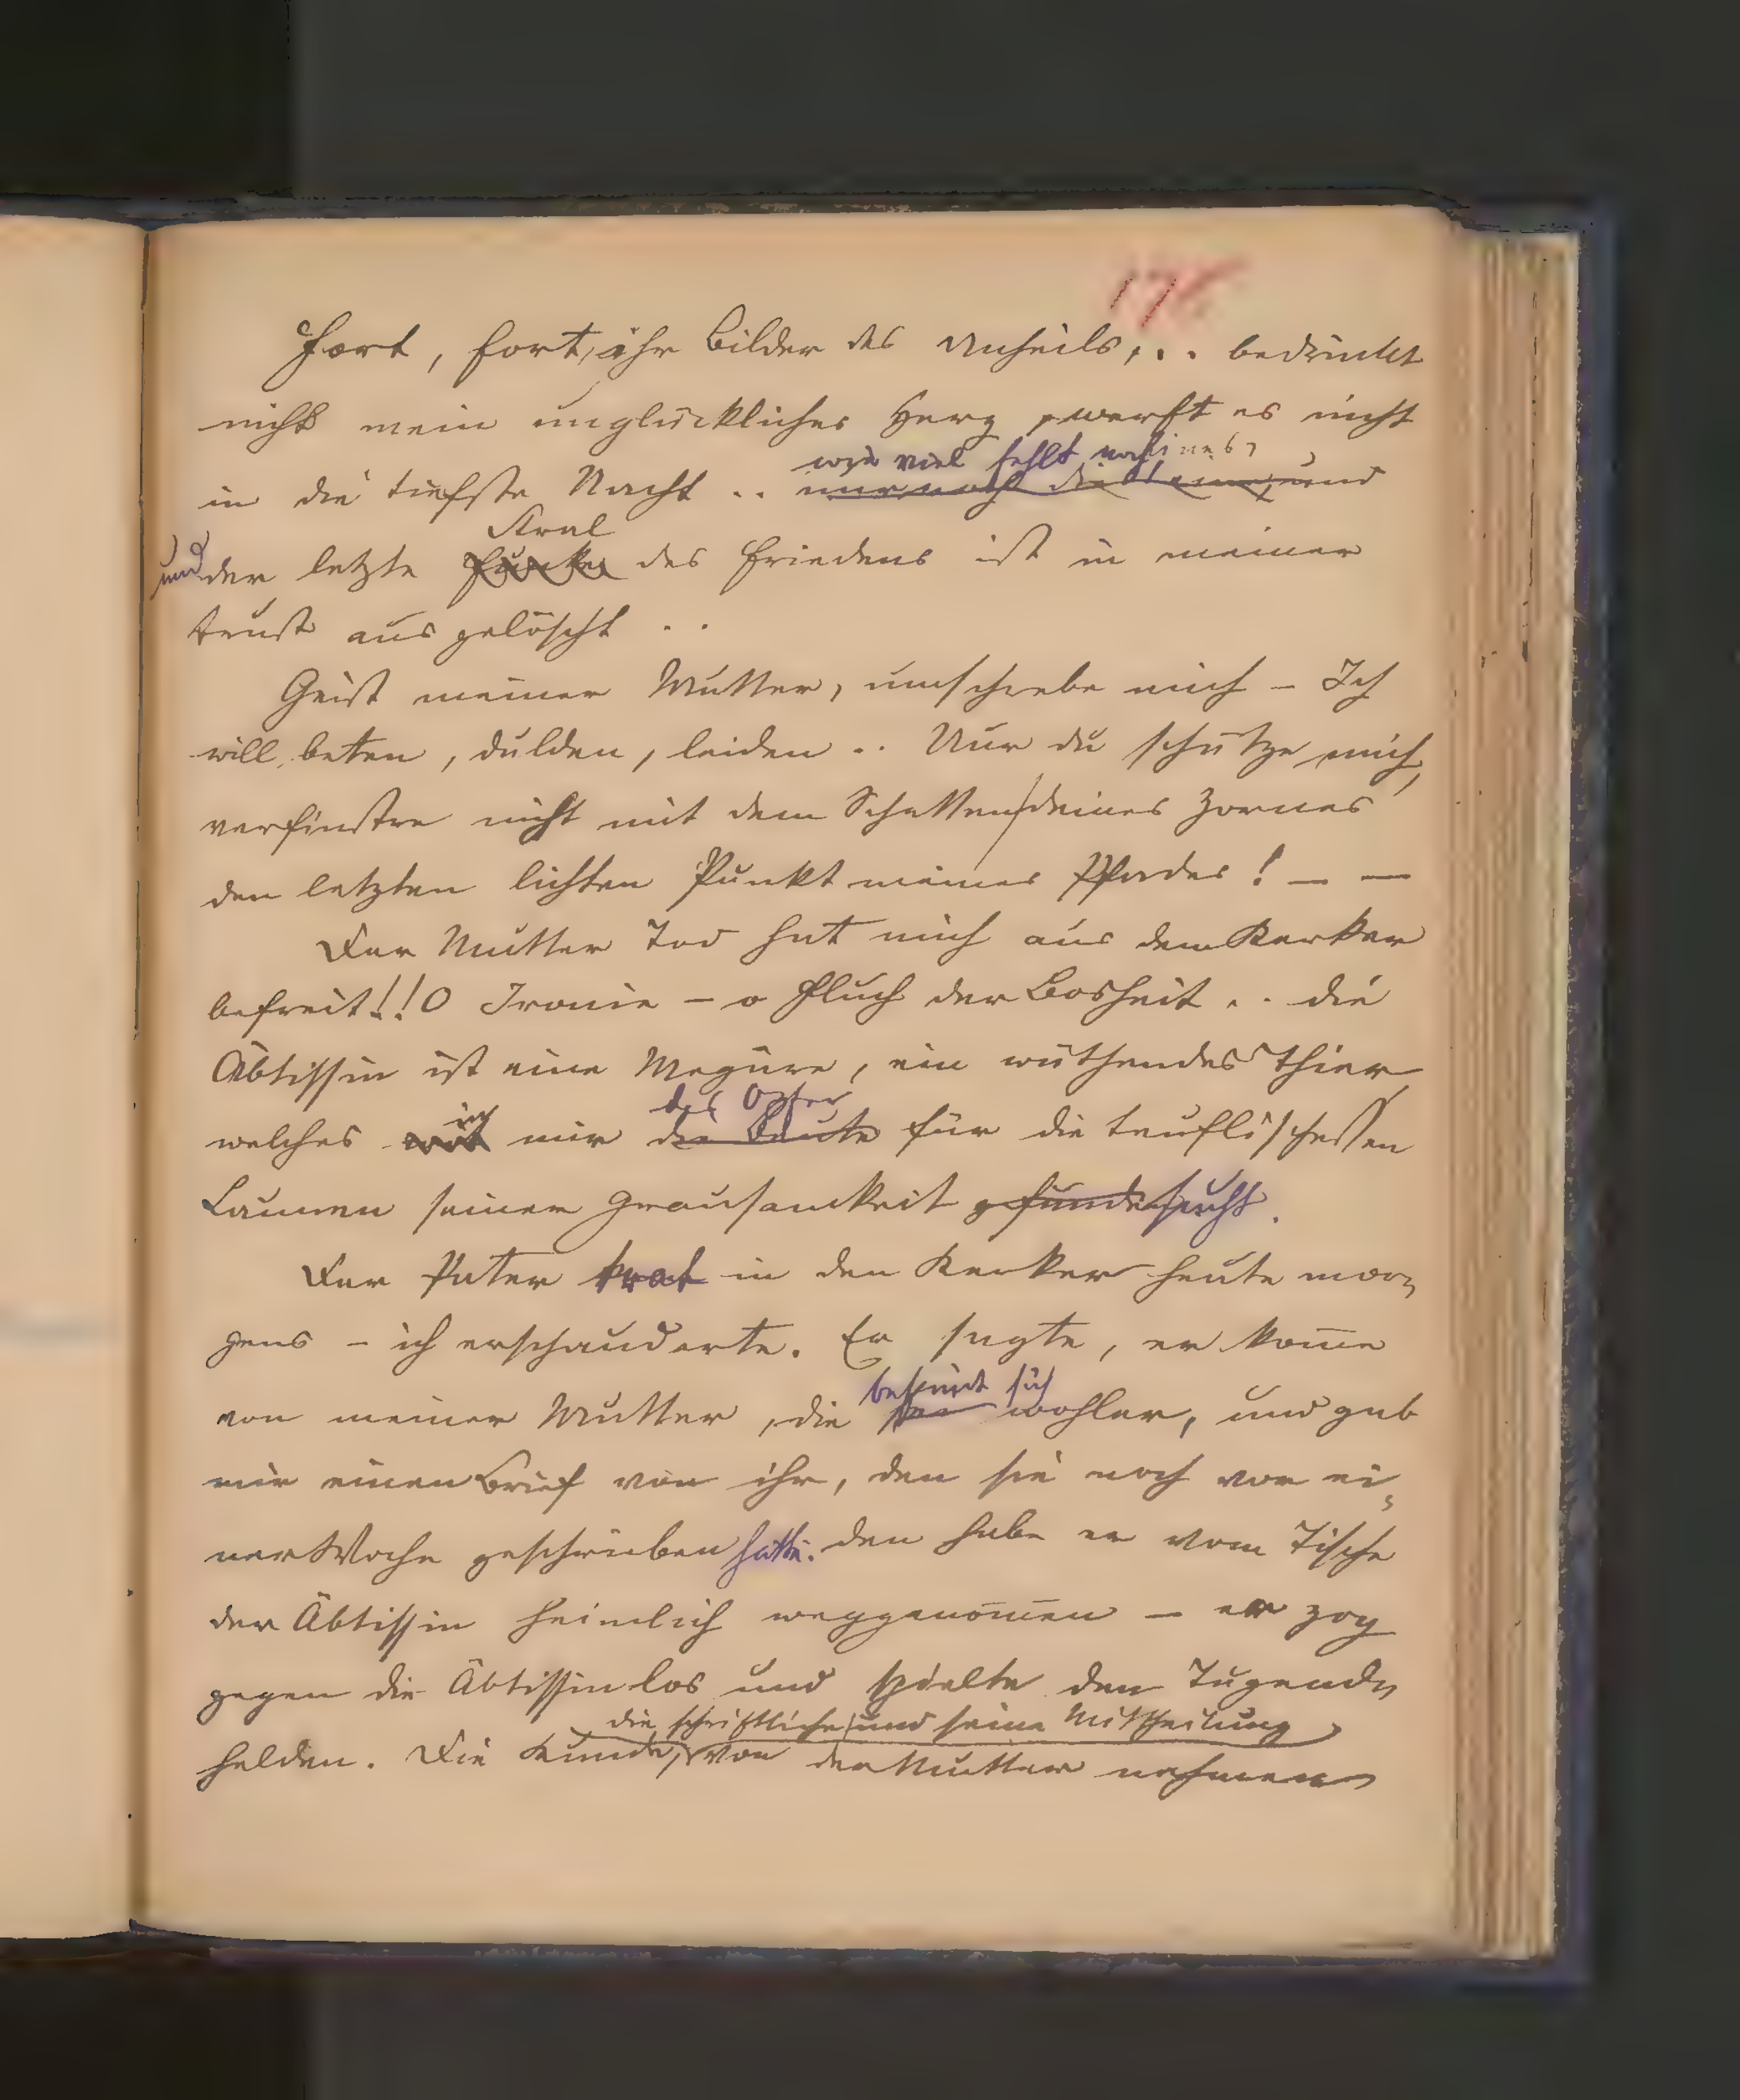 Fort, fort, ihr Bilder des Unheils, .. bedrücket
nicht mein unglückliches Herz, werft es nicht
wie viel fehlt noch
in die tiefste Nacht .. nur noch und
Stral
und der letzte Funke des Friedens ist in meiner
Brust ausgelöscht ..
Geist meiner Mutter, umschwebe mich – Ich
will beten, dulden, leiden .. Nur du schütze mich,
verfinstre nicht mit dem Schatten deines Zornes
den letzten lichten Punkt meines Pfades! – –
Der Mutter Tod hat mich aus dem Kerker
befreit!! O Ironie – o Fluch der Bosheit .. die
Äbtissin ist eine Megäre, ein wüthendes Thier
in das Opfer
welches mir die Beute für die teuflischesten
Launen seiner Grausamkeit gefunden sucht.
Der Pater trat in den Kerker heute mor-
gens – ich erschauderte. Er sagte, er kom̄e
befindet sich
von meiner Mutter, die wohler, und gab
mir einen Brief von ihr, den sie noch vor ei-
ner Woche geschrieben hatte. den habe er vom Tische
der Äbtissin heimlich weggenom̄en – er zog
gegen die Äbtissin los und spielte den Tugend-
die schriftliche und seine Mittheilung
helden. Die Kunde, von der Mutter nahmen